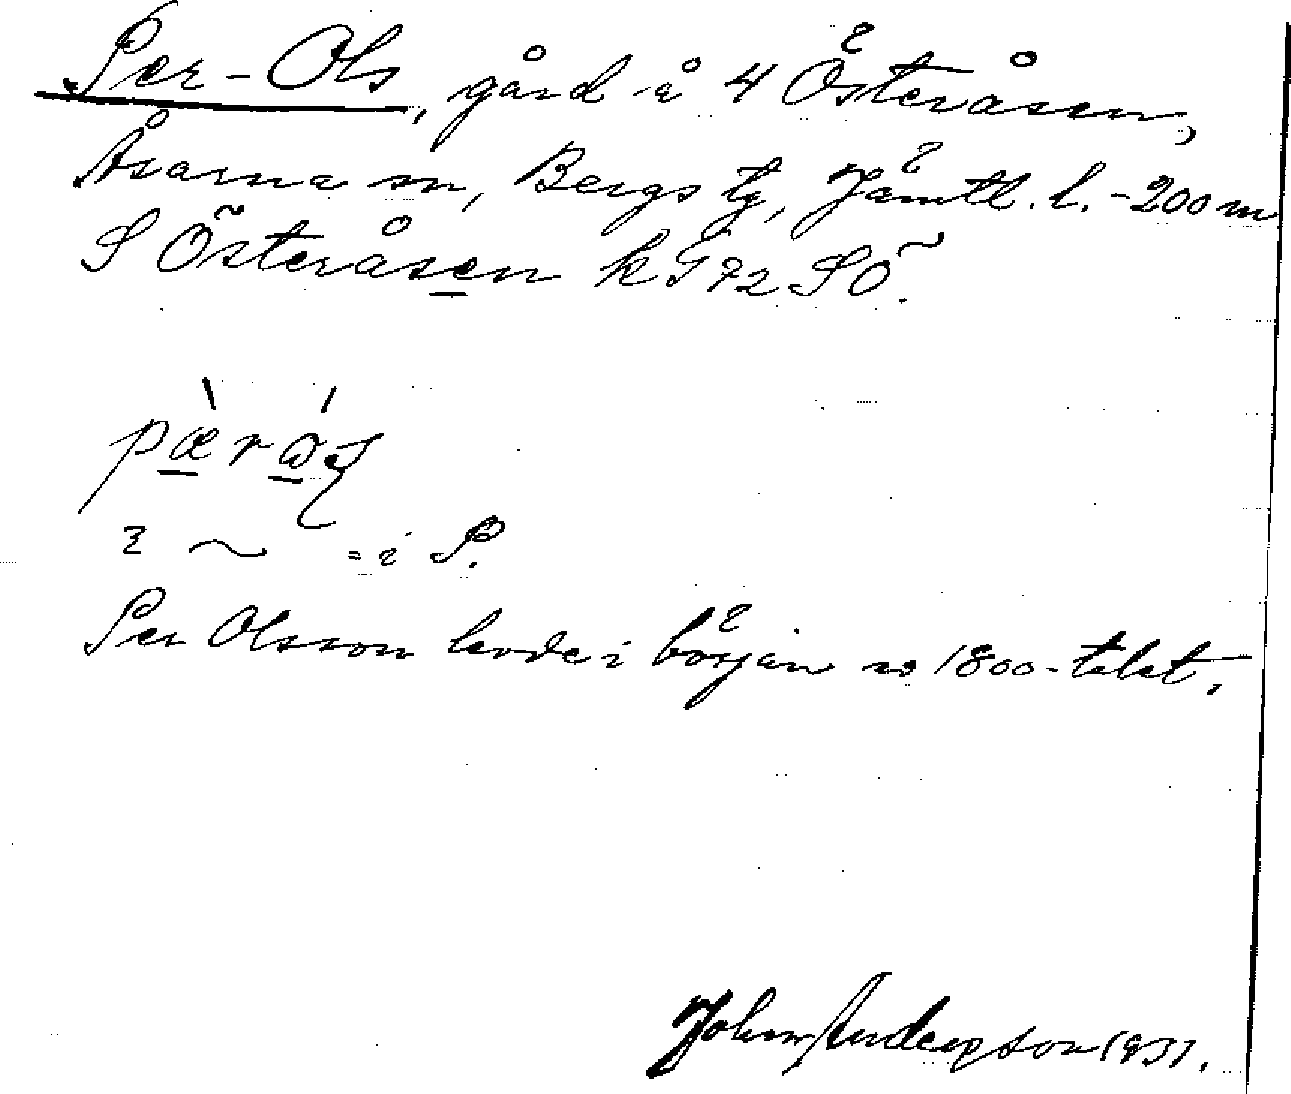 Per-Ols, gård å 4 Österåsen,
Åsarna sn, Bergs tg, Jämtl. l. - 200 m
S Österåsen k G 72 SÖ.
i P.
Per Olsson levde i början av 1800-talet.
John Anderson 1931.